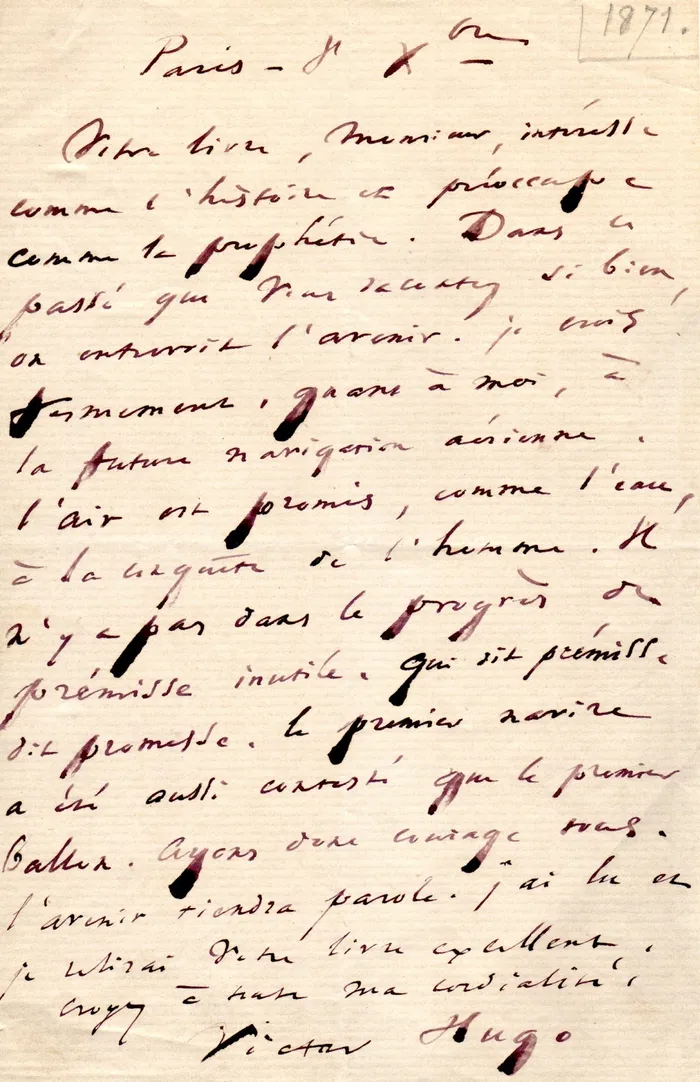 1871.
Paris - 8 Xbre
Votre livre, Monsieur, intéresse
comme l'histoire et préoccupe
comme la prophétie. Dans ce
passé que vous racontez si bien,
on entrevoit l'avenir. je crois
fermement, quant à moi, à
la future navigation aérienne.
l'air est promis, comme l'eau,
à la conquête de l'homme. Il
n'y a pas dans le progrès de
prémisse inutile. qui dit prémisse
dit promesse. le premier navire
a été aussi contesté que le premier
ballon. Ayons donc courage tous.
l'avenir tiendra parole. j'ai lu et
je relirai votre livre excellent.
croyez à toute ma cordialité.
Victor Hugo